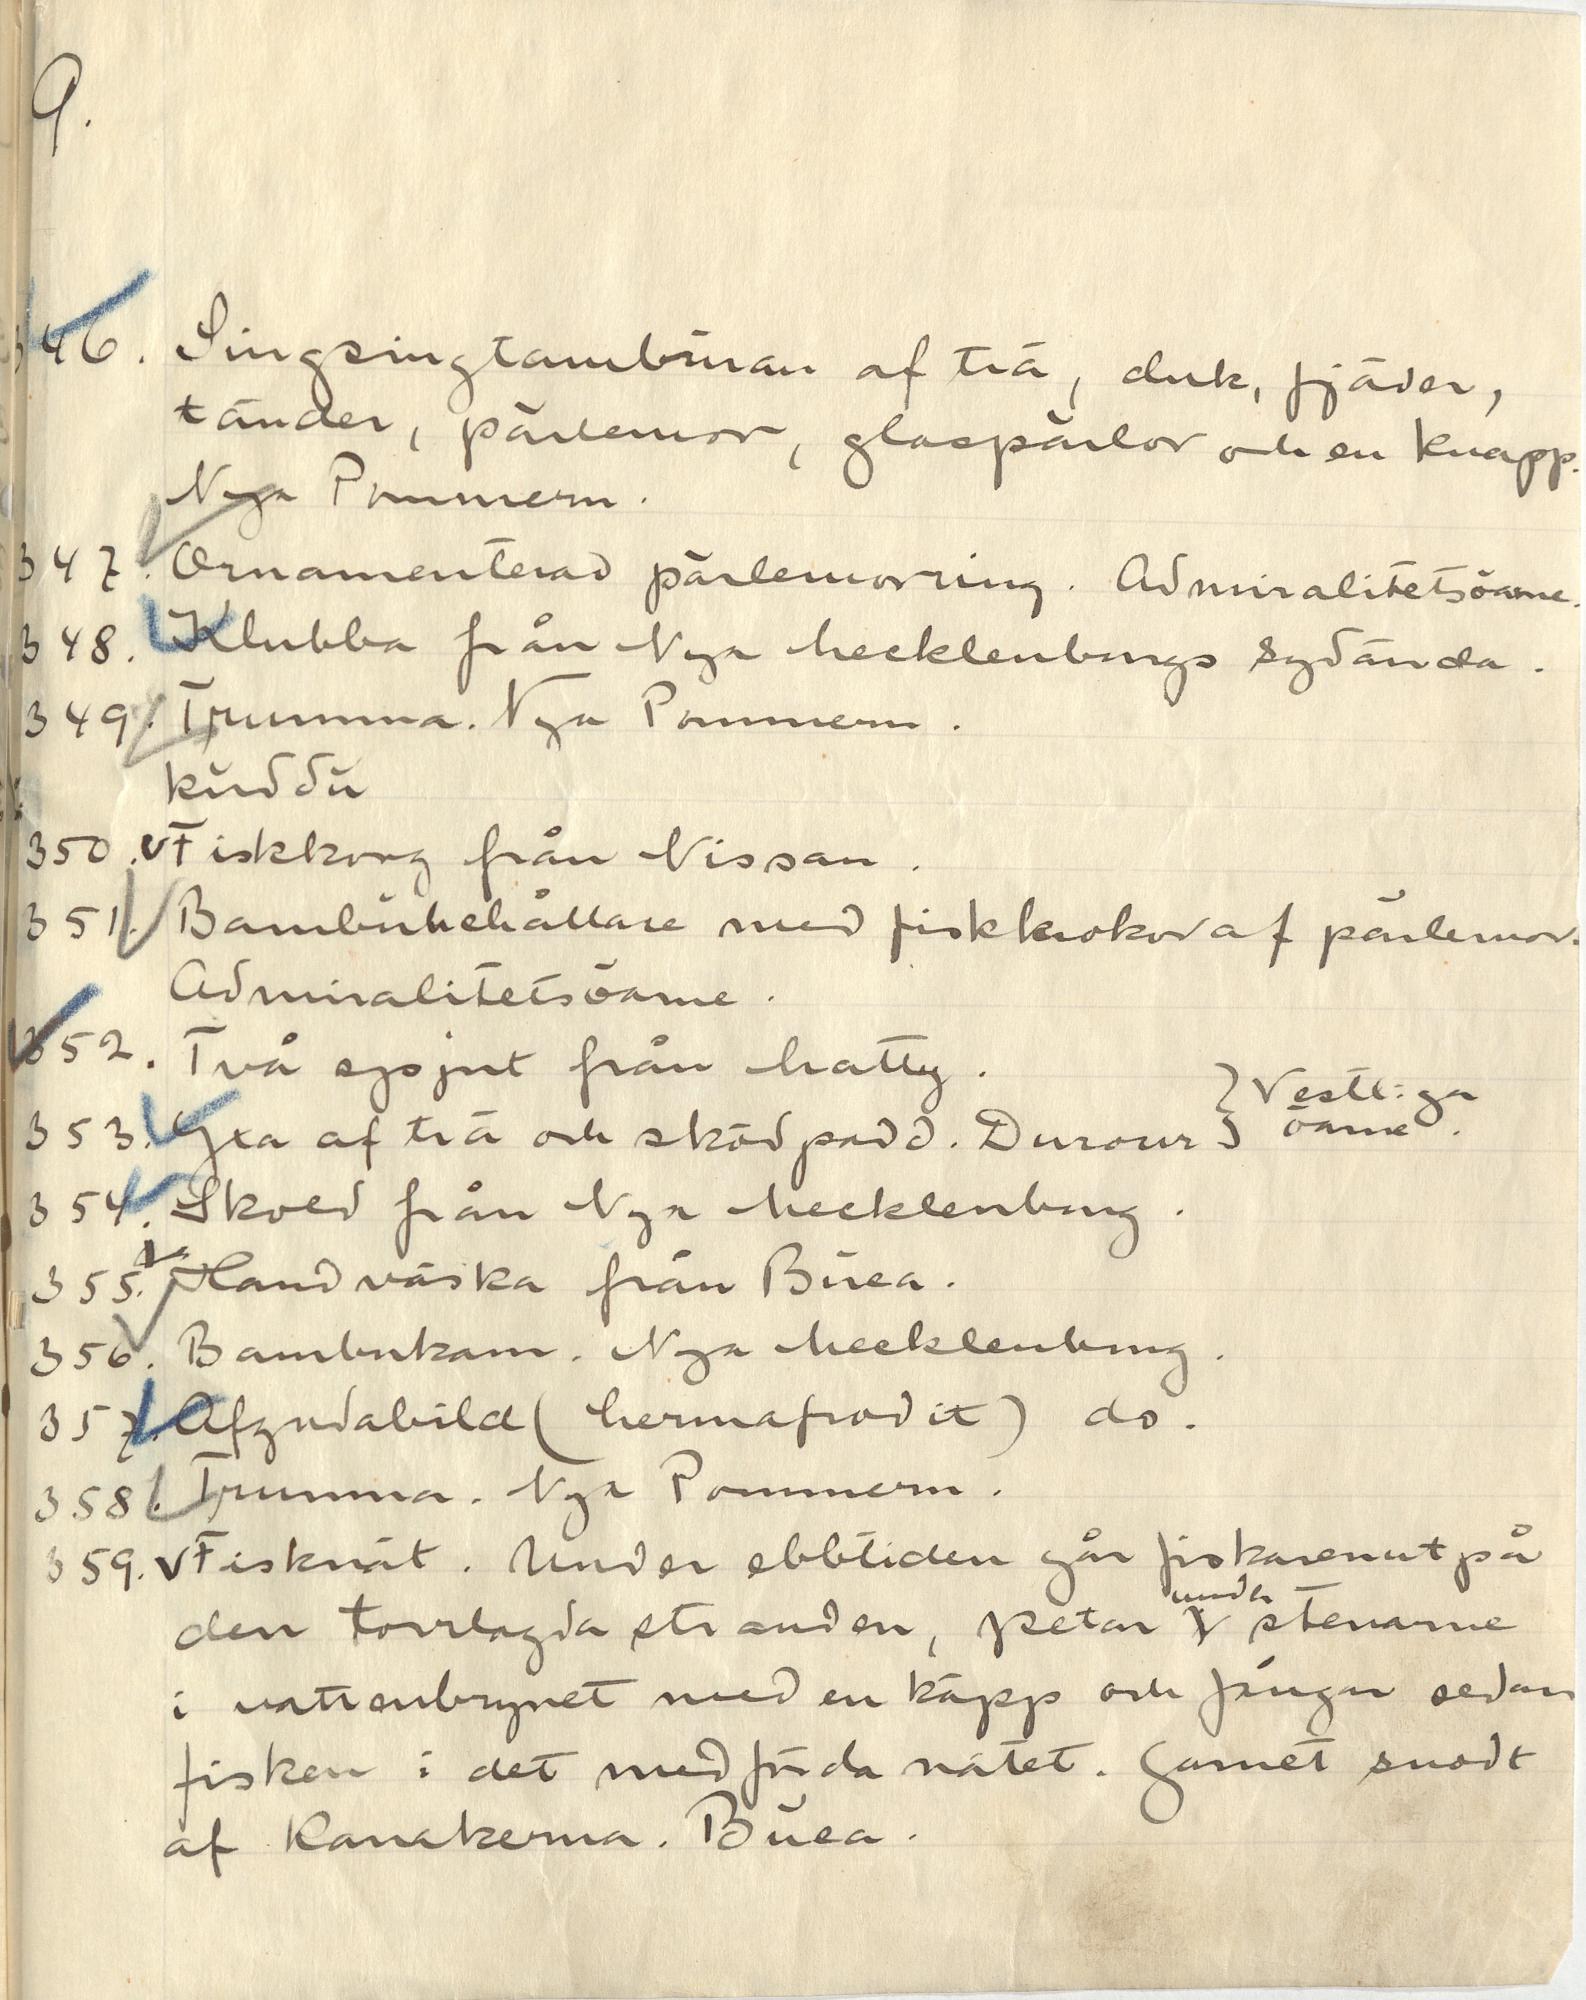 9.
346. Singsingtamburan af trä, duk, fjäder,
tänder, pärlemor, glaspärlor och en knapp.
Nya Pommern.
347. Ornamenterad pärlemorring. Admiralitetsöarne.
348. Klubba från Nya Mecklenburgs sydända.
349. Trumma. Nya Pommern.
kuddu
350. Fiskkorg från Nissan.
351. Bambubehållare med fiskkrokar af pärlemor.
Admiralitetsöarne.
352. Två spjut från Matty. } Vestliga
353. Yxa af trä och sköldpadd. Durour } öarne.
354. Skoed från Nya Mecklenburg.
355. Handväska från Buea.
356. Bambukam. Nya Mecklenburg.
357. Afgudabild (hermafrodit) do.
358. Trumma. Nya Pommern.
359. Fisknät. Under ebbtiden går fiskaren ut på
den torrlagda stranden, petar under stenarne
i vattenbrynet med en käpp och fångar sedan
fisken i det medförda nätet. Garnet snodt
af Kanakerna. Buea.